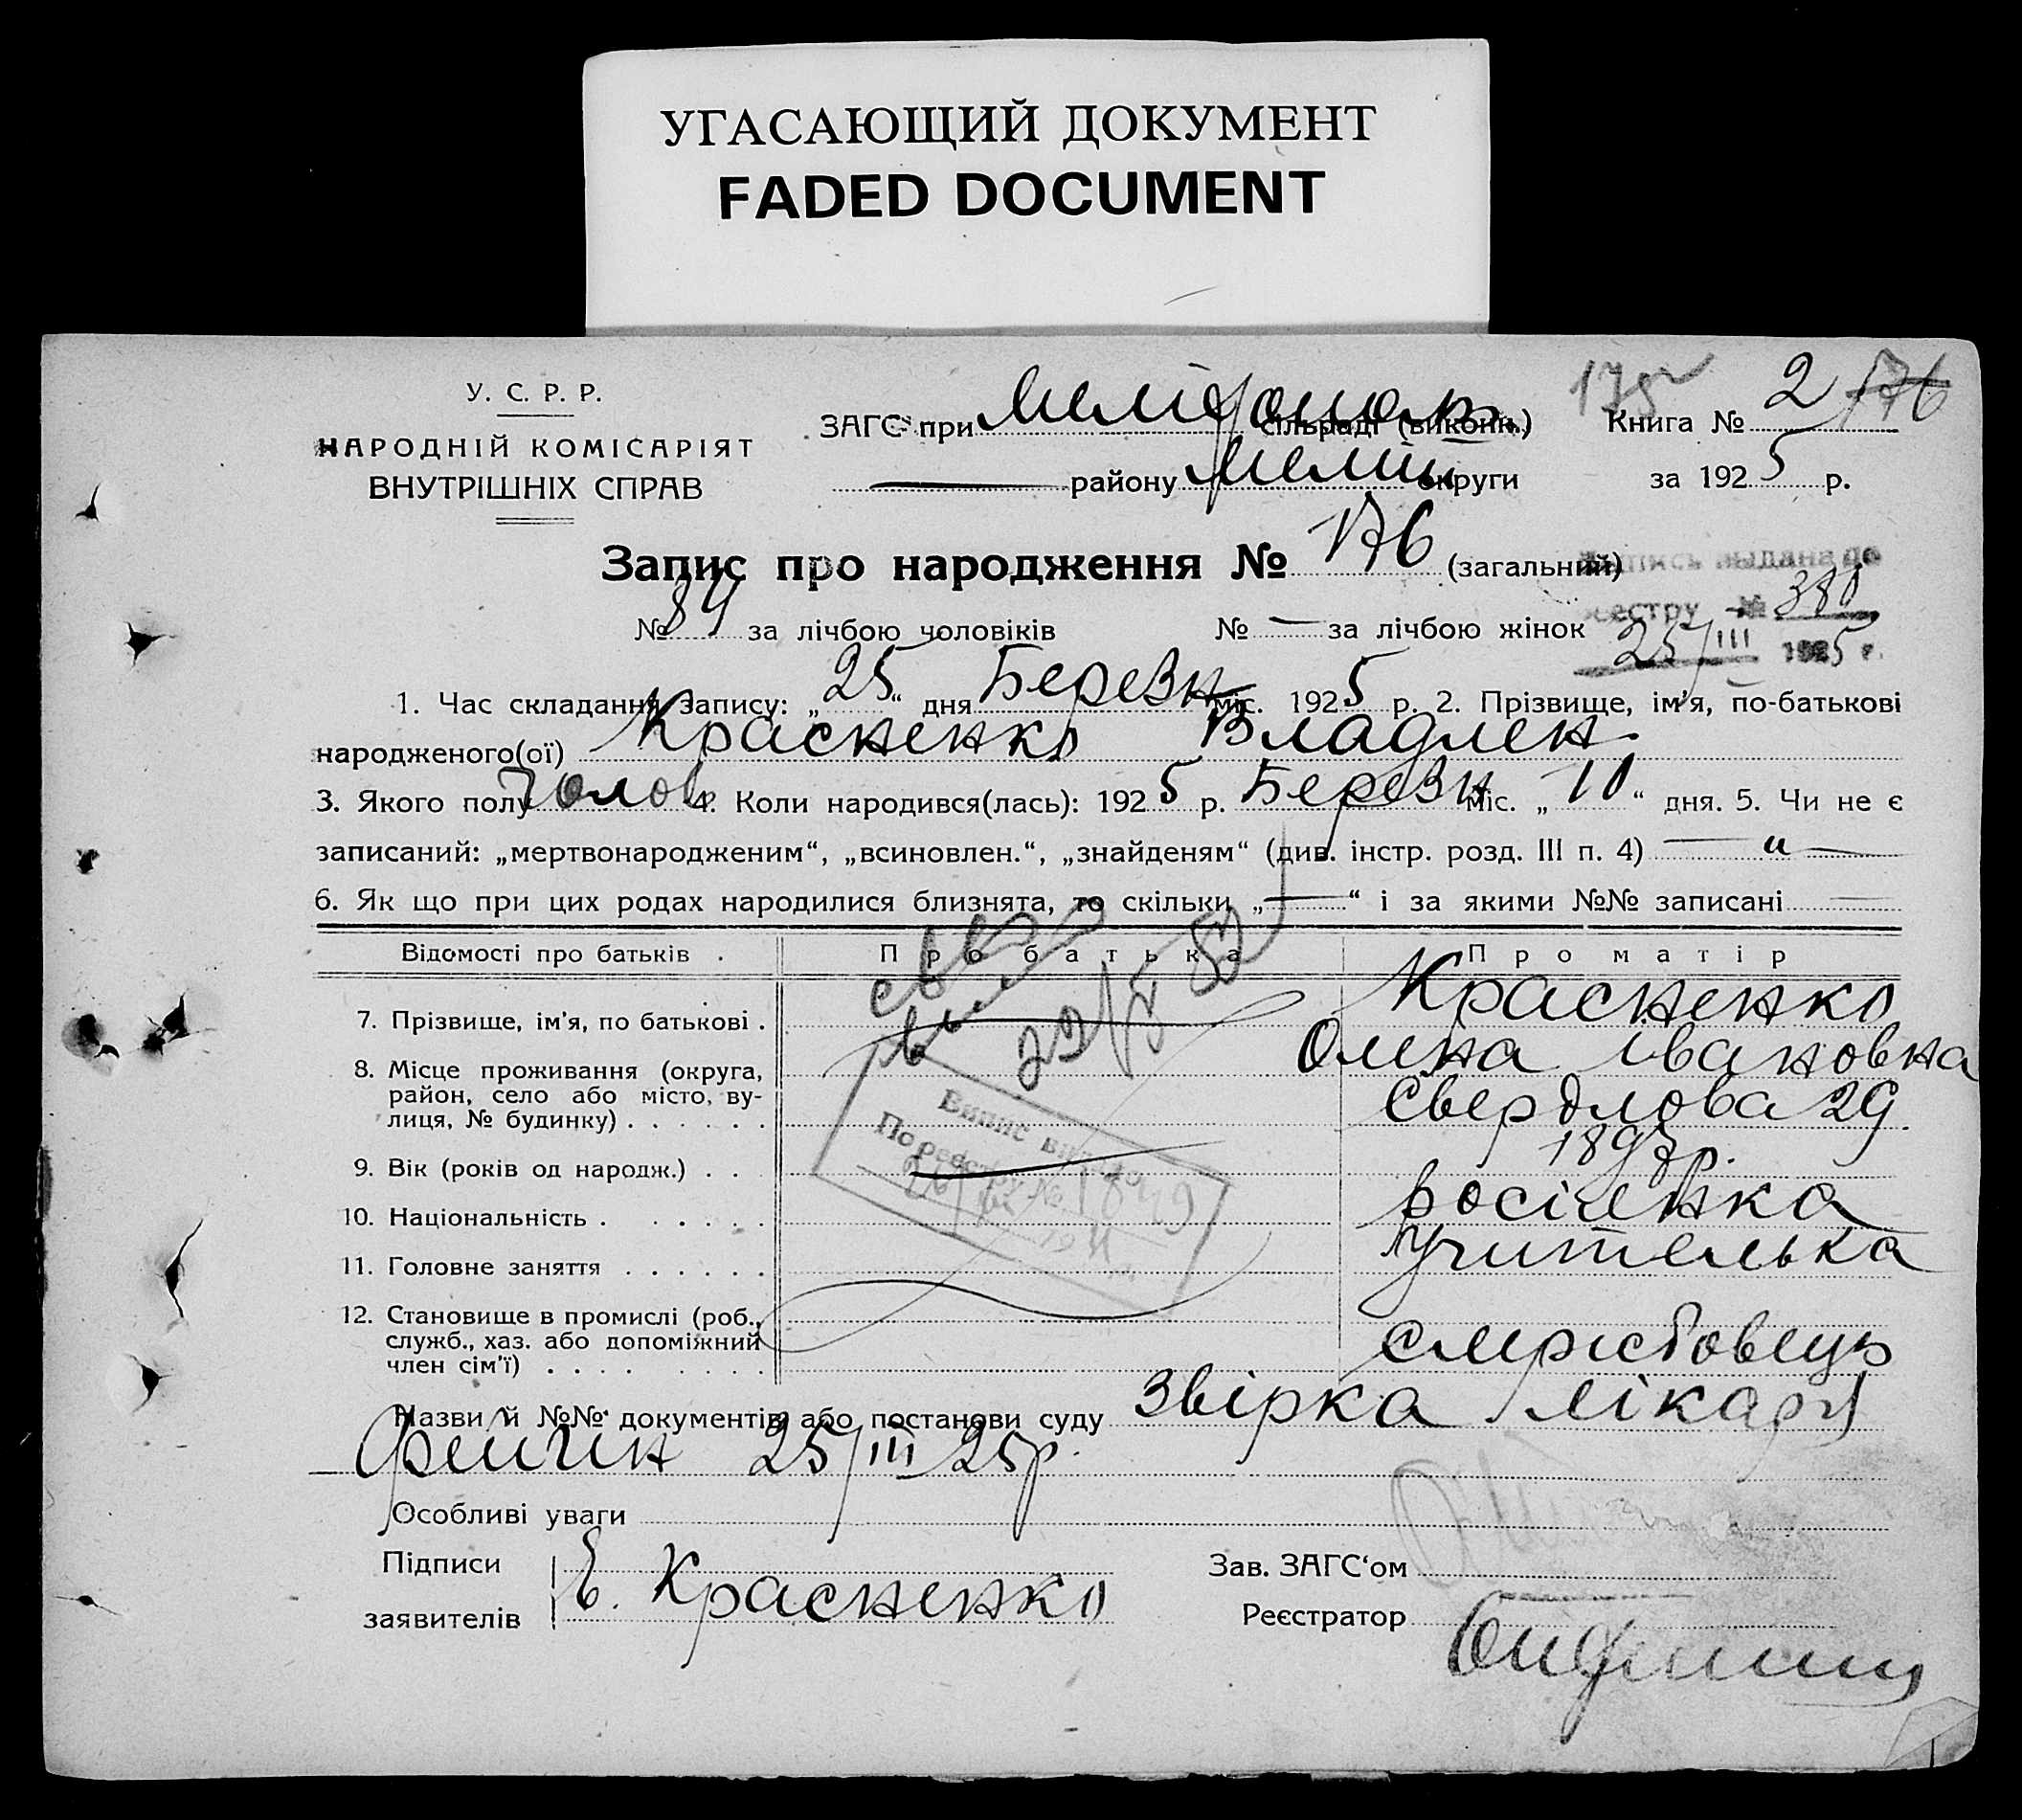 УГАСАЮЩИЙ ДОКУМЕНТ
FADED DOCUMENT
У. С. Р. Р.
НАРОДНІЙ КОМІСАРІЯТ
ВНУТРІШНІХ СПРАВ
ЗАГС при Мелітополь сільраді (виконк.)
району Меліт округи
175 Книга № 2 176
за 1925 р.
Запис про народження № 176 (загальний)
№ 84 за лічбою чоловіків № — за лічбою жінок
выдана по
реестру № 388
25/III 1925 г.
1. Час складання запису: „25“ дня Березн міс. 1925 р. 2. Прізвище, ім’я, по-батькові
народженого(ої) Красненко Владлен
3. Якого полу чолов 4. Коли народився(лась): 1925 р. Березн міс. „10“ дня. 5. Чи не є
записаний: „мертвонародженим“, „всиновлен.“, „знайденям“ (див. інстр. розд. III п. 4) — „ —
6. Як що при цих родах народилися близнята, то скільки „—“ і за якими №№ записані —
Відомості про батьків Про батька Про матір
7. Прізвище, ім’я, по батькові . Красненко
Олена Івановна
8. Місце проживання (округа,
район, село або місто, ву-
лиця, № будинку) . . . . . . Свердлова 29
9. Вік (років од народж.) . . 1897 р.
10. Національність . . . . . . росіенка
11. Головне заняття . . . . . . Учителька
12. Становище в промислі (роб.,
служб., хаз. або допоміжний
член сім’ї) . . . .
Випис видано
По реєстру № 1849
Назви й №№ документів або постанови суду Звірка лікаря
25/III 25р.
Особливі уваги
Підписи
заявителів Е. Красненко
Зав. ЗАГС‘ом
Реєстратор